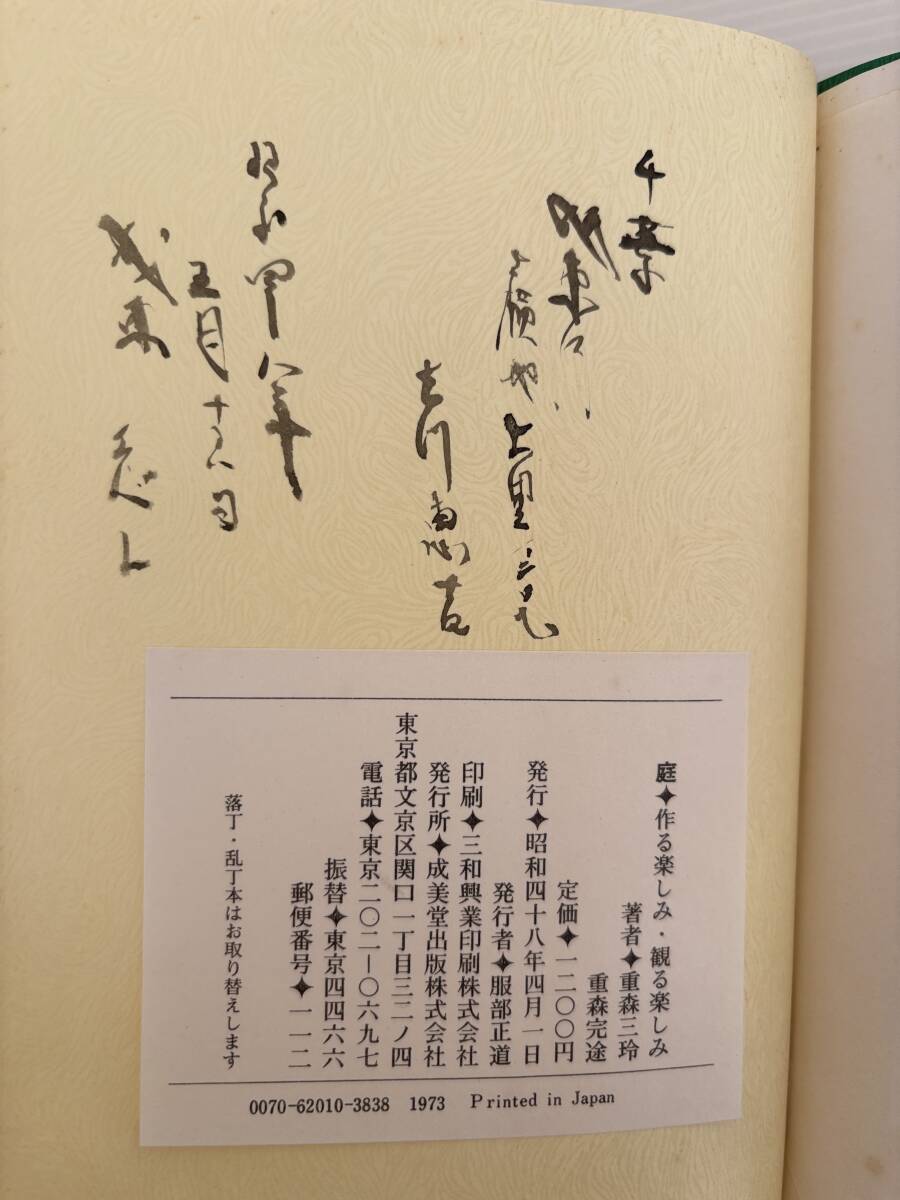 千葉
成東町
上里
吉川惠吉
昭和四十八年
五月十六日
成東
庭✦作る楽しみ・観る楽しみ
著者✦重森三玲
重森完途
定価✦一二〇〇円
発行✦昭和四十八年四月一日
発行者✦服部正道
印刷✦三和興業印刷株式会社
発行所✦成美堂出版株式会社
東京都文京区関口一丁目三二ノ四
電話✦東京二〇二―〇六九七
振替✦東京四四六六
郵便番号✦一一二
落丁・乱丁本はお取り替えします
0070-62010-3838 1973 Printed in Japan